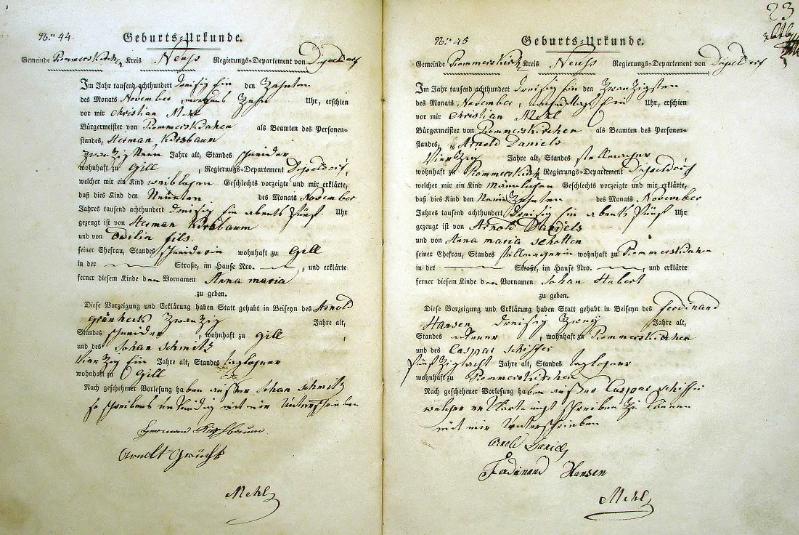 No. 44.
Geburts-Urkunde.
Gemeinde Rommerskirchen Kreis Neuss Regierungs-Departement von Düsseldorf
Im Jahr tausend achthundert dreisig ein den Zehnten
des Monats November vormittags Zehn Uhr, erschien
vor mir Christian Mehl
Bürgermeister von Rommerskirchen als Beamten des Personen-
standes, Herman Kirsbaum
Jahre alt, Standes schneider
wohnhaft zu Gill, Regierungs-Departement Düsseldorf,
welcher mir ein Kind weiblichen Geschlechts vorzeigte und mir erklärte,
daß dies Kind den Neunten des Monats November
Jahres tausend achthundert dreisig ein abents fünf Uhr
gezeugt ist von Herman Kirsbaum
und von Odilia fils
seiner Ehefrau, Standes schneiderin wohnhaft zu Gill
in der Straße, im Hause Nro. , und erklärte
ferner diesem Kinde den Vornamen Anna maria
zu geben.
Diese Vorzeigung und Erklärung haben Statt gehabt in Beiseyn des Arnold
Zwanzig Jahre alt,
Standes schneider, wohnhaft zu Gill
und des Johan Schmitz
Vierzig ein Jahre alt, Standes taglohner
wohnhaft zu Gill
Nach geschehener Vorlesung haben ausser Johan Schmitz
schreibens unkundig mit mir Unterschrieben
Herman Kirschbaum
Mehl
23
No. 45
Geburts-Urkunde.
Gemeinde Rommerskirchen Kreis Neuss Regierungs-Departement von Düsseldorf
Im Jahr tausend achthundert dreisig ein den Zwanzigsten
des Monats November, Uhr, erschien
vor mir Christian Mehl
Bürgermeister von Rommerskirchen als Beamten des Personen-
standes, Arnold Daniels
Vierzig Jahre alt, Standes
wohnhaft zu Rommerskirchen Regierungs-Departement Düsseldorf
welcher mir ein Kind Männlichen Geschlechts vorzeigte und mir erklärte,
daß dies Kind den Neunzehnten des Monats November
Jahres tausend achthundert dreisig ein abents fünf Uhr
gezeugt ist von Arnold Daniels
und von Anna maria Scholten
seiner Ehefrau, Standes wohnhaft zu Rommerskirchen
in der Straße, im Hause Nro. , und erklärte
ferner diesem Kinde den Vornamen Johan Hubert
zu geben.
Diese Vorzeigung und Erklärung haben Statt gehabt in Beiseyn des Ferdinand
Hansen dreisig Zwei Jahre alt,
Standes , wohnhaft zu Rommerskirchen
und des Caspar Schiffer
Jahre alt, Standes taglohner
wohnhaft zu Rommerskirchen
Nach geschehener Vorlesung haben ausser Caspar Schiffer
welcher erklarte nigt schreiben zu können
mit mir Unterschrieben
Ferdinand Hansen
Mehl